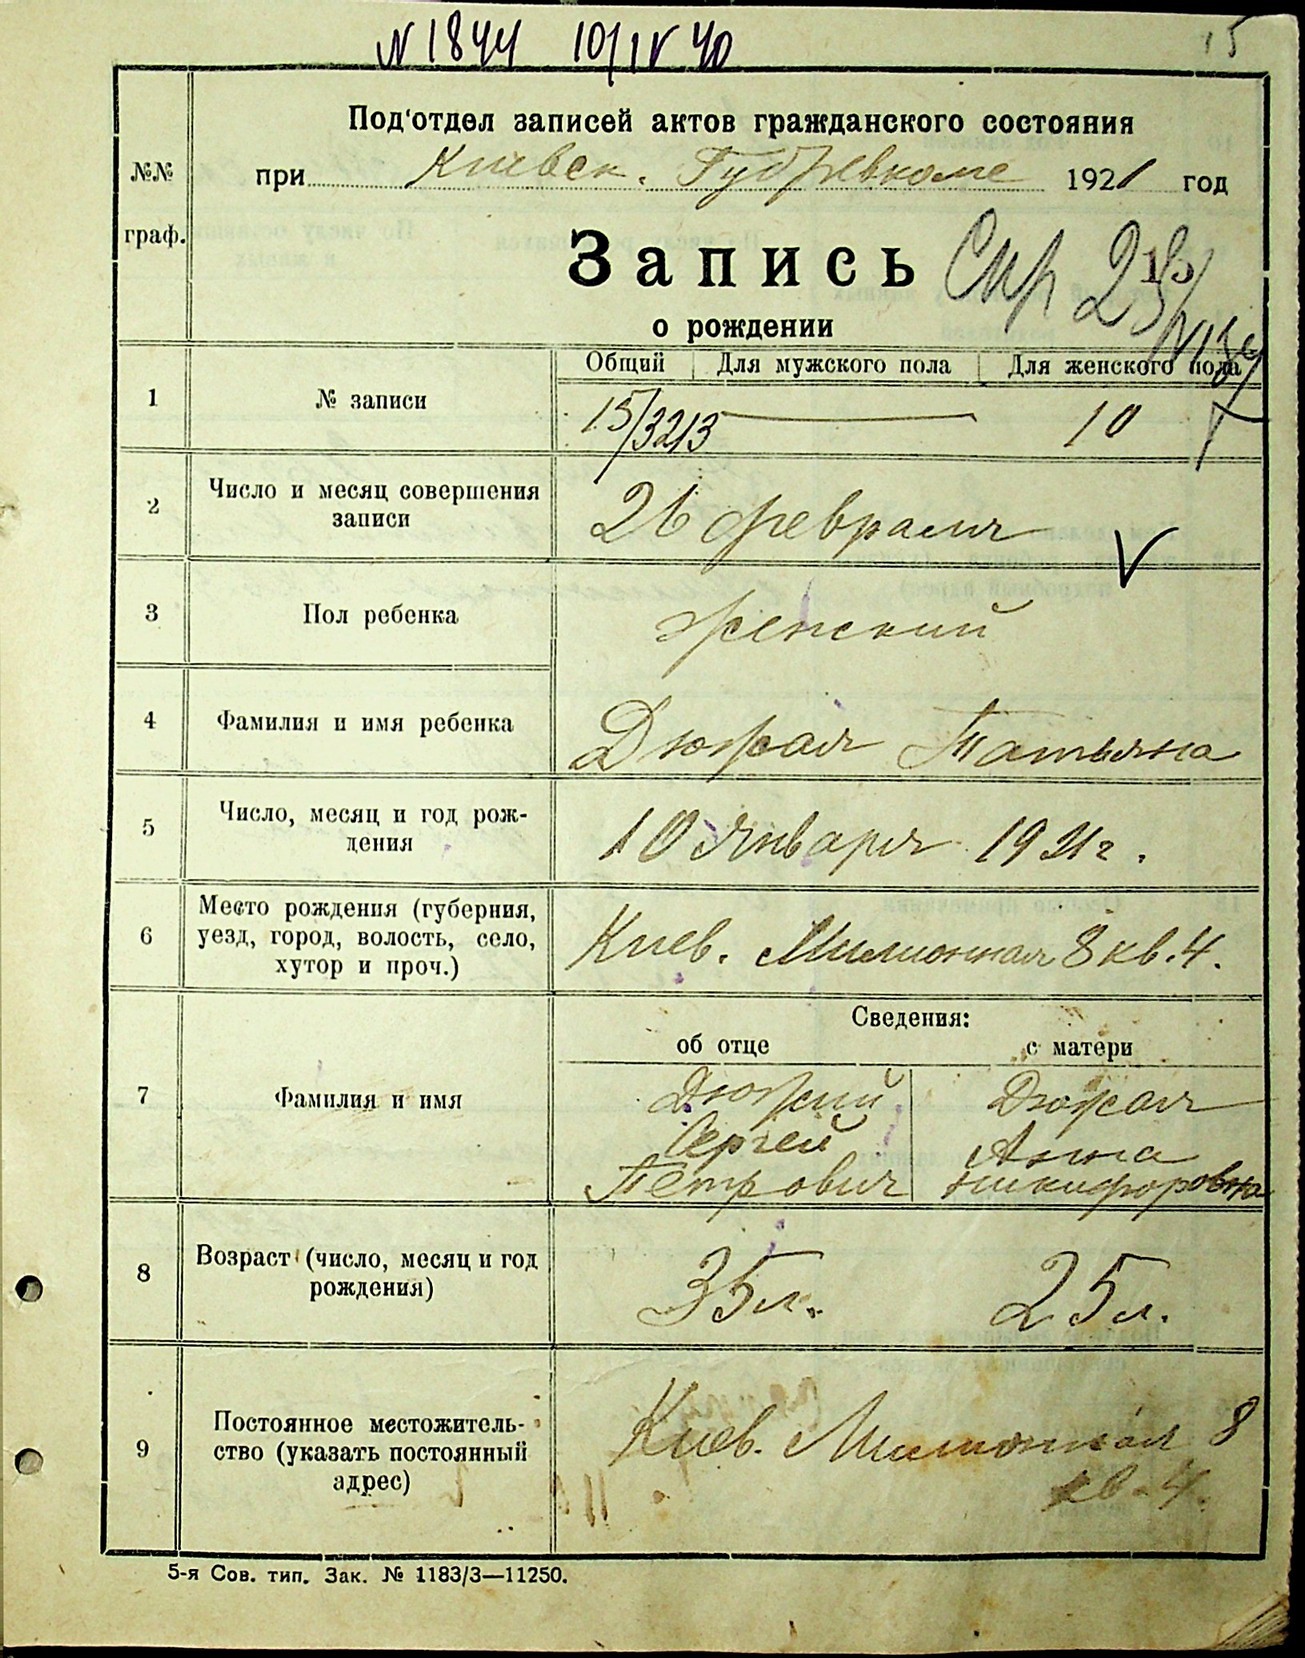 N 1844 10/IV 40
15
Под'отдел записей актов гражданского состояния
№№ граф.
при Киевск. Губревкоме 1921 год
Запись
о рождении
Общий Для мужского пола Для женского пола
1 № записи 15/3213 — 10
2 Число и месяц совершения
записи
26 февраля
3 Пол ребенка женский
4 Фамилия и имя ребенка Дюжая Татьяна
5 Число, месяц и год рож-
дения
10 января 1921 г.
6 Место рождения (губерния,
уезд, город, волость, село,
хутор и проч.)
Киев. Милионная 8 кв. 4.
Сведения:
об отце с матери
7 Фамилия и имя
Дюжий
Сергей
Петрович
Дюжая
Анна
Никифоровна
8 Возраст (число, месяц и год
рождения)
35 л. 25 л.
9 Постоянное местожитель-
ство (указать постоянный
адрес)
Киев. Милионная 8
кв. 4.
5-я Сов. тип. Зак. № 1183/3—11250.